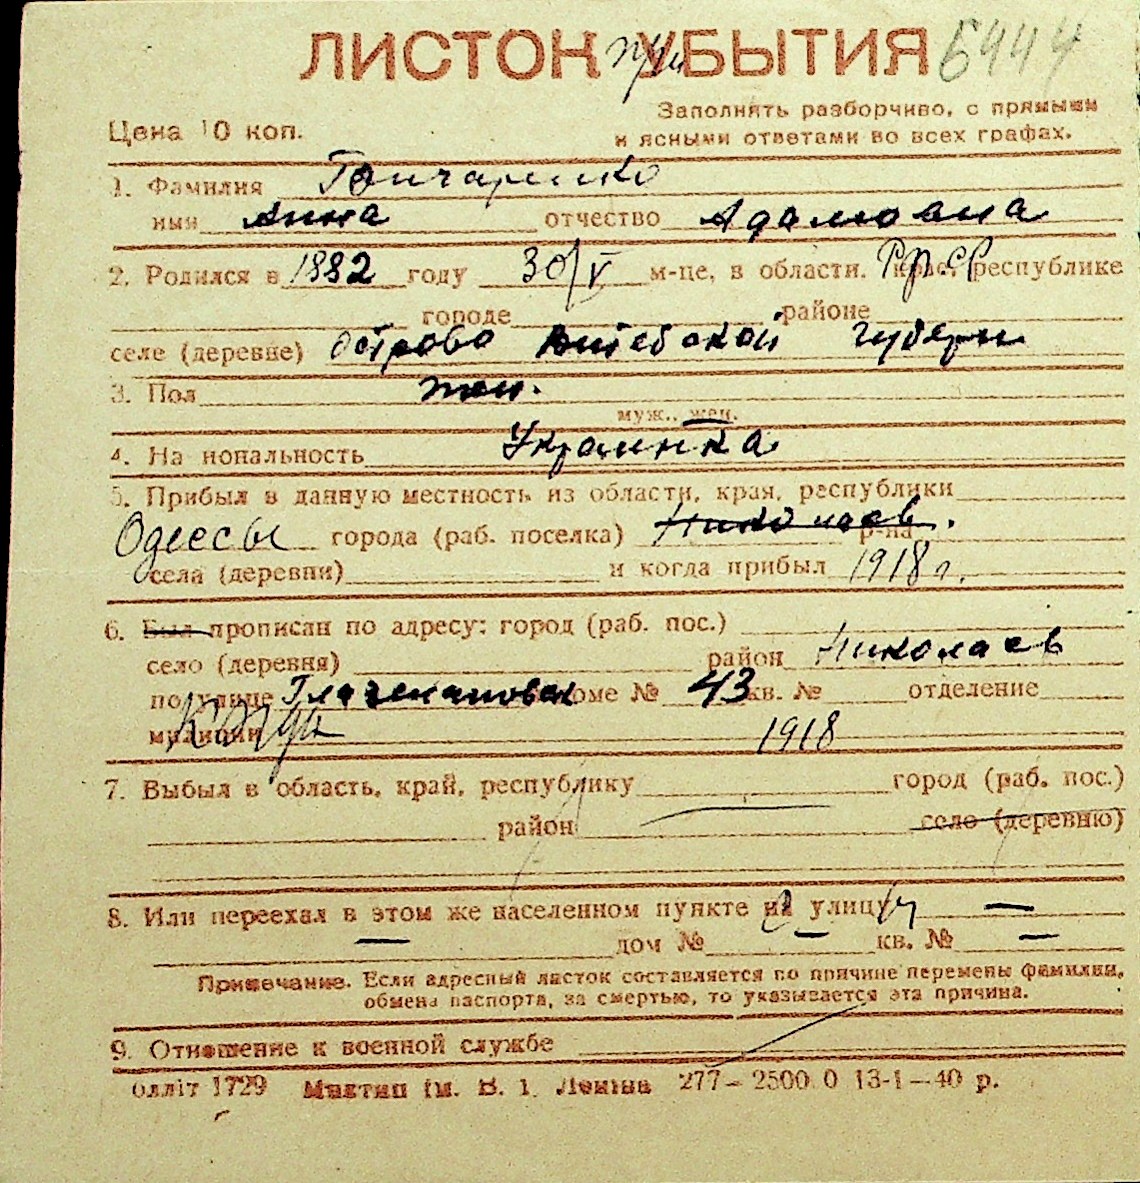 ЛИСТОК при УБЫТИЯ 5444
Цена 10 коп.
Заполнять разборчиво, с прямыми
и ясными ответами во всех графах.
1. Фамилия Гончаренко
имя Анна отчество Адамовна
2. Родился в 1882 году 30/V м-це, в области, крае, республике
городе районе
селе (деревне) Острово Витебской губерн
3. Пол жен.
муж., жен.
4. Национальность Украинка
5. Прибыл в данную местность из области, края, республики
Одессы города (раб. поселка) Николаев. р-на
села (деревни) и когда прибыл 1918 г.
6. Был прописан по адресу: город (раб. пос.)
село (деревня) район Николаев
по улице доме № 43 кв. № отделение
милиции 1918
7. Выбыл в область, край, республику город (раб. пос.)
район село (деревню)
8. Или переехал в этом же населенном пункте на улицу —
— дом № — кв. № —
Примечание. Если адресный листок составляется по причине перемены фамилии,
обмена паспорта, за смертью, то указывается эта причина.
9. Отношение к военной службе
олліт 1729 Миктип ім. В. І. Леніна 277—2500 0 13-1—40 р.